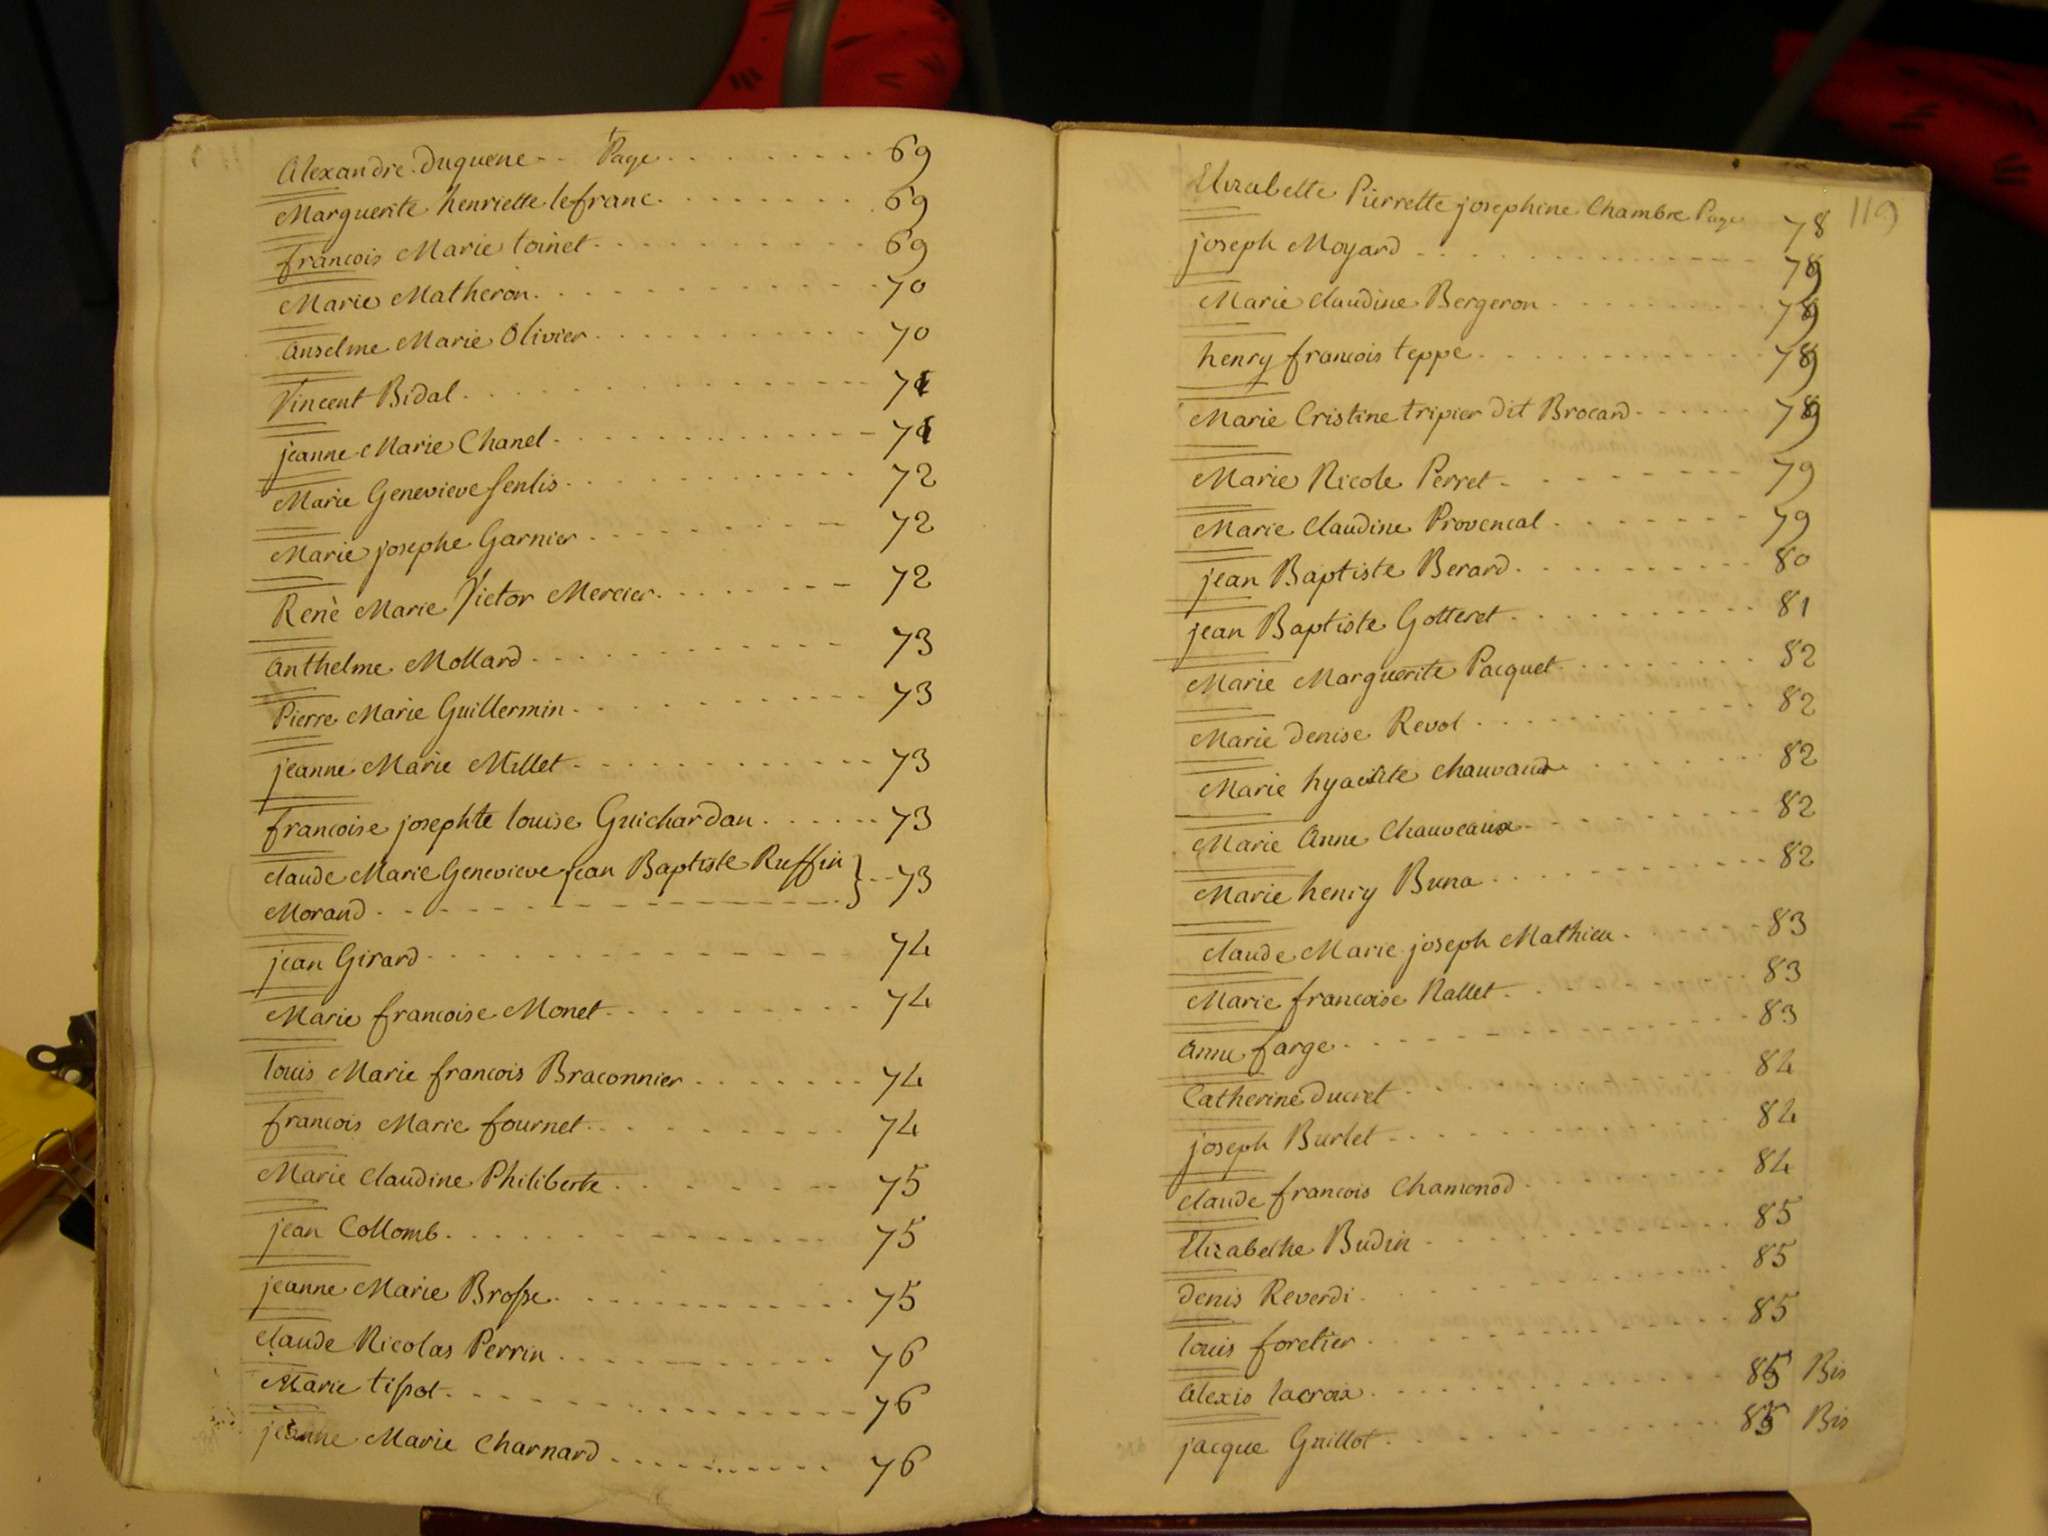 Alexandre duquene - - Page . . . . . . . . 69
Marguerite henriette lefranc . . . . . . . 69
francois Marie toinet . . . . . . . . . 69
Marie Matheron . . . . . . . . . . . 70
Anselme Marie Olivier . . . . . . . . . 70
Vincent Bidal . . . . . . . . . . . . 71
jeanne Marie Chanel . . . . . . . . . . . 71
Marie Genevieve Senlis . . . . . . . . . 72
Marie josephe Garnier . . . . . . . . 72
Renè Marie Victor Mercier . . . . . . . 72
Anthelme Mollard . . . . . . . . . . . 73
Pierre Marie Guillermin . . . . . . . . . 73
jeanne Marie Millet . . . . . . . . . . . 73
francoise josephte louise Guichardan . . . . . . 73
claude Marie Genevieve jean Baptiste Ruffin } - - 73
Morand - - - - - - - - - - - -
jean Girard . . . . . . . . . . . . 74
Marie francoise Monet . . . . . . . . . 74
louis Marie francois Braconnier . . . . . . . 74
francois Marie fournet . . . . . . . . . 74
Marie claudine Philiberte . . . . . . . . 75
jean Collomb . . . . . . . . . . . . 75
jeanne Marie Brosse . . . . . . . . . . . 75
claude Nicolas Perrin . . . . . . . . . . 76
Marie tissot . . . . . . . . . . . . 76
jeanne Marie Charnard . . . . . . . . . 76
119
Elizabette Pierrette josephine Chambre Page 78
joseph Moyard . . . . . . . . . . . . 79
Marie claudine Bergeron . . . . . . . . 79
henry francois teppe . . . . . . . . . . . 79
Marie Cristine tripier dit Brocard . . . . . . 79
Marie Nicole Perret . . . . . . . . 79
Marie claudine Provencal . . . . . . . . 79
jean Baptiste Berard . . . . . . . . . . 80
jean Baptiste Gotteret . . . . . . . . . 81
Marie Marguerite Pacquet . . . . . . . . 82
Marie denise Revol . . . . . . . . . . . 82
Marie hyacinte chauvaud . . . . . . . 82
Marie Anne Chauveaux . . . . . . . . . 82
Marie henry Buna . . . . . . . . . . . 82
claude Marie joseph Mathieu . . . . . . 83
Marie francoise Rallet . . . . . . . . 83
Anne farge . . . . . . . . . . . . . 83
Catherine ducret . . . . . . . . . . . 84
joseph Burlet . . . . . . . . . . . . 84
claude francois Chamonod . . . . . . . . 84
Elizabethe Budin . . . . . . . . . . . 85
denis Reverdi . . . . . . . . . . . . 85
louis foretier . . . . . . . . . . . . 85
Alexis lacroix . . . . . . . . . . . . 85 Bis
jacque Guillot . . . . . . . . . . . . 85 Bis